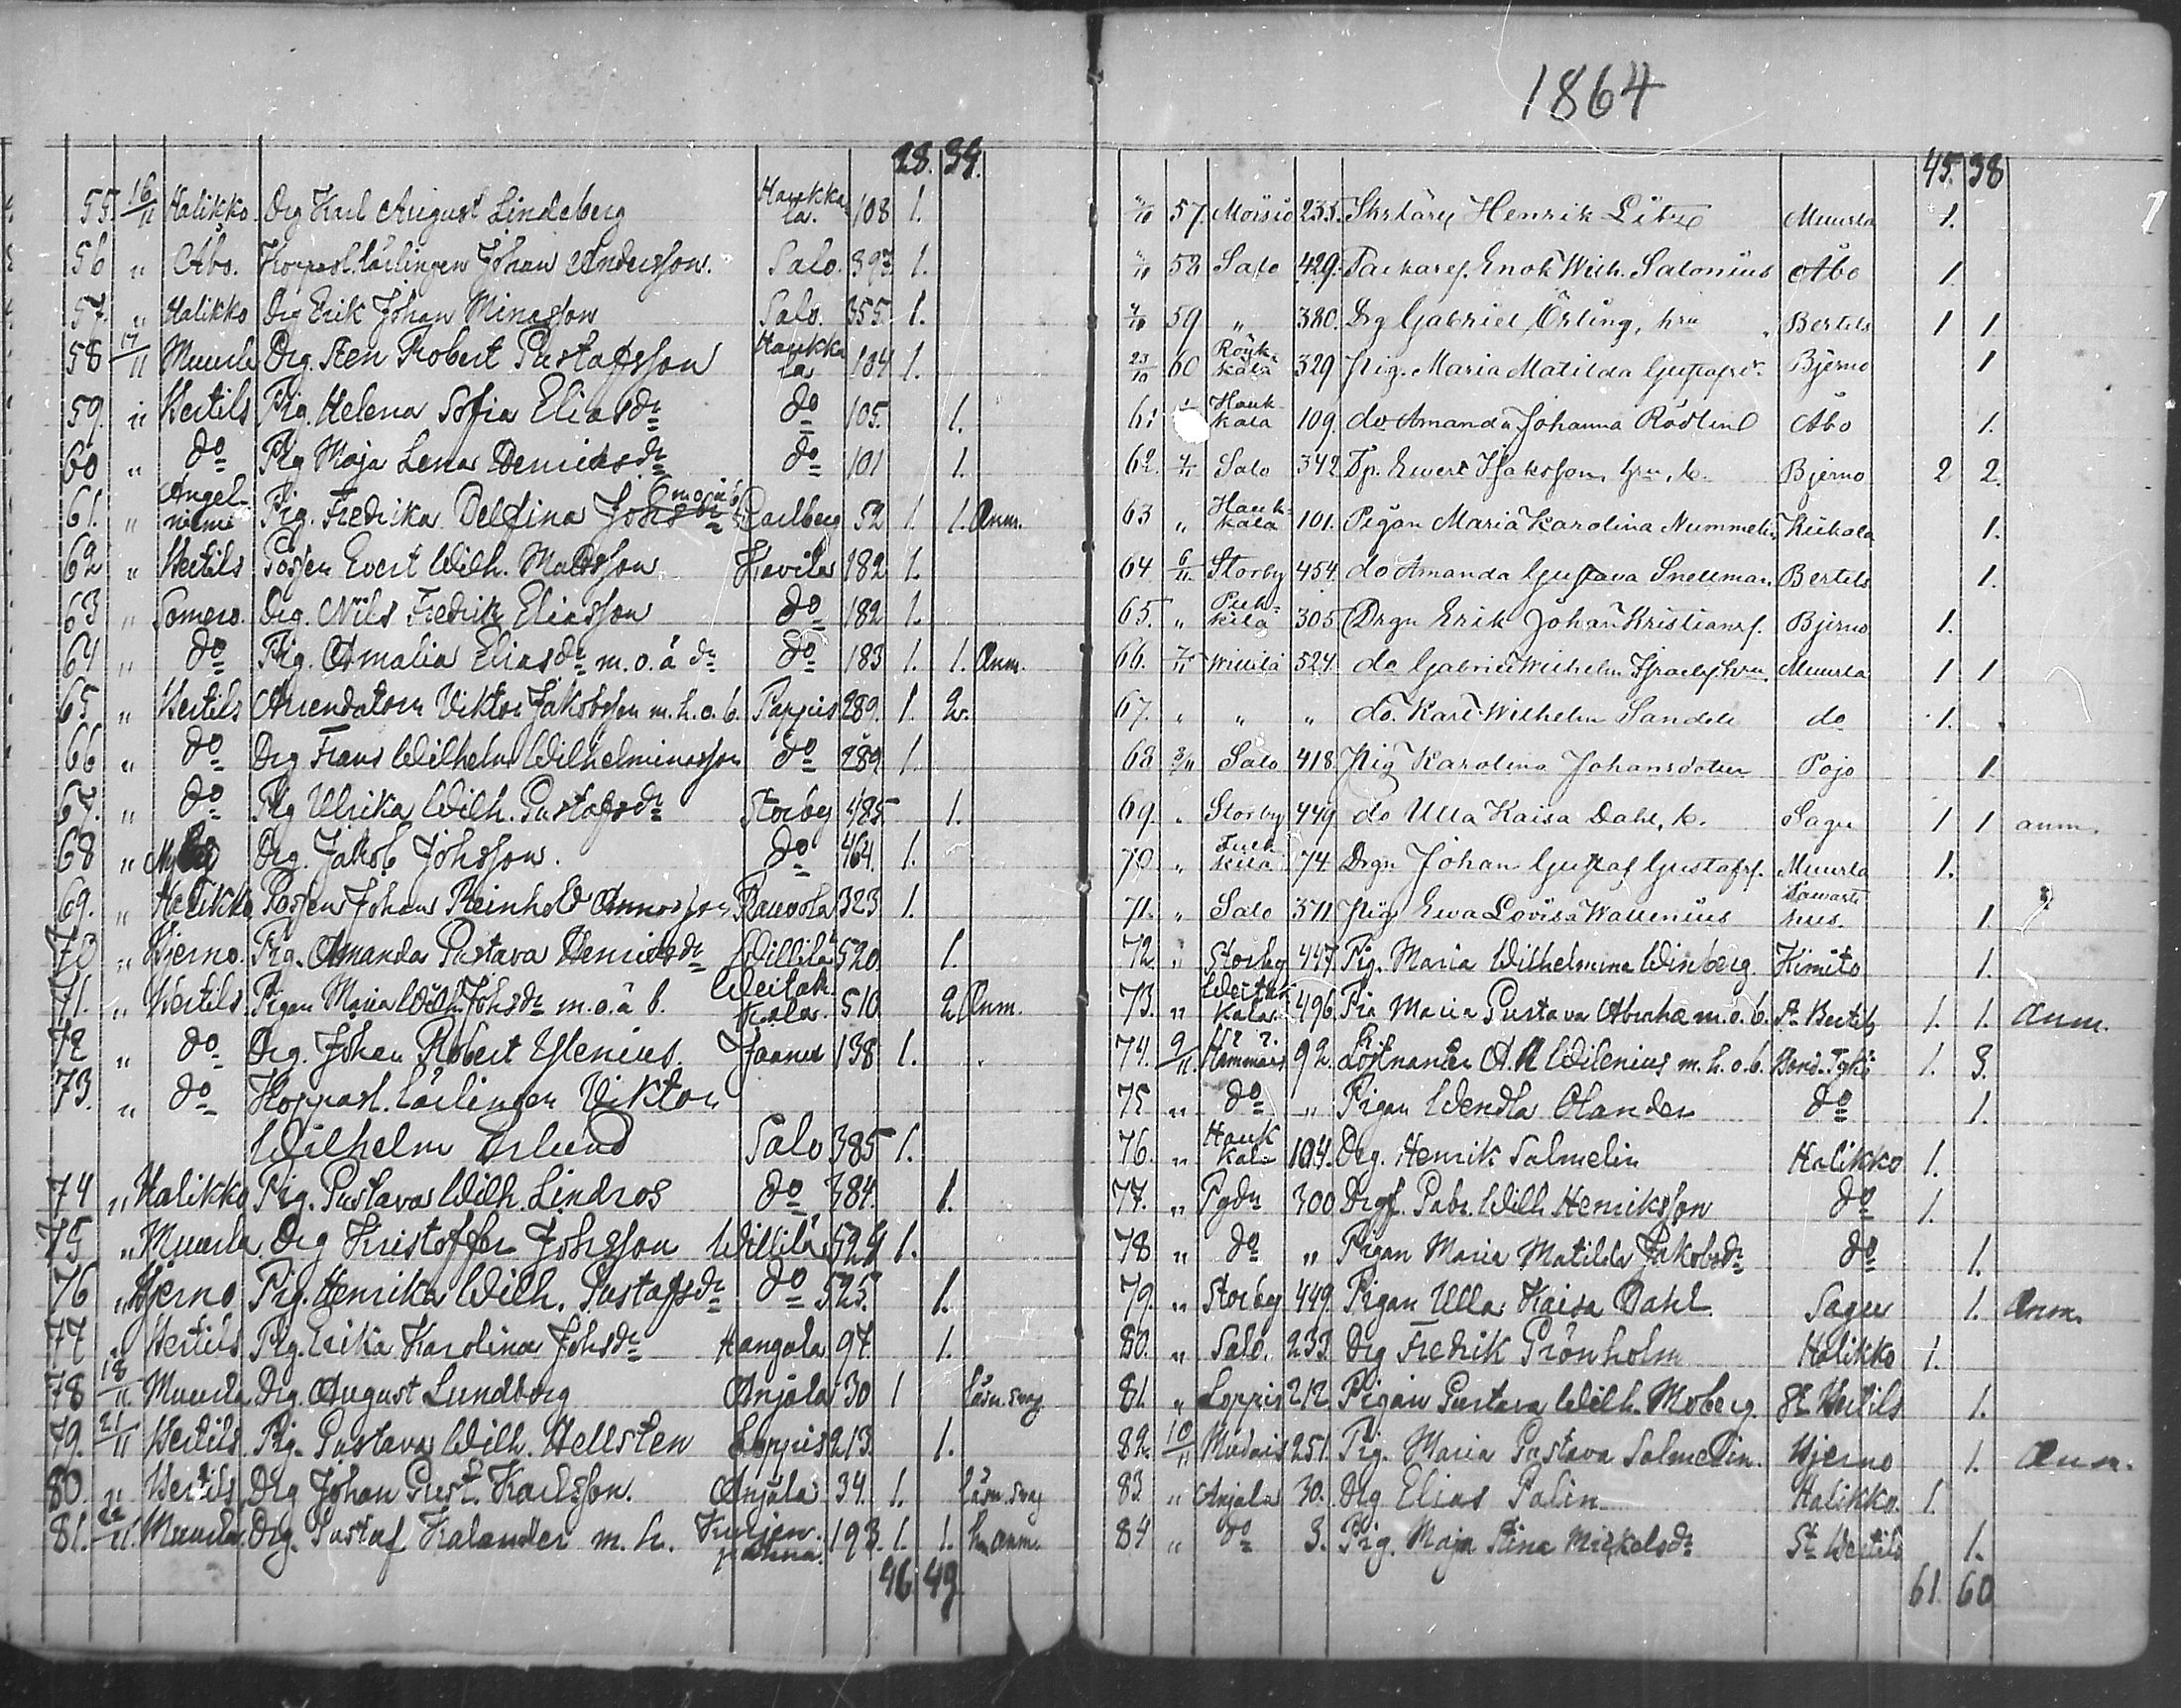 28. 39.
55. 16/11 Halikko Drg Karl August Lindeberg Haukkala. 108 1.
56 " Åbo. Kopparsl. lärlingen Johan Andersson. Salo. 393. 1.
57. " Halikko Drg Erik Johan Minasson Salo. 355. 1.
58 17/11 Muurla Drg. Sten Robert Gustafsson Haukkala 104 1.
59. " Bertils Pig. Helena Sofia Eliasdr do 105. 1.
60 " do Pig Maja Lena Henriksdr do 101 1.
61. " Angelniemi Pig. Fredrika Delfina Johsdr m o ä b Carlberg 52 1. 1. Anm.
62 " Bertils Gossen Evert Wilh. Mattsson Kavila 182 1.
63 " Somero. Drg. Nils Fredrik Eliasson do 182 1.
64 " do Pig. Amalia Eliasdr m. o. ä dr do 183 1. 1. Anm.
65 " Bertils Arrendatorn Viktor Jakobsson m. h. o. b. Pappis 289. 1. 2.
66 " do Drg Frans Wilhelm Wilhelminasson do 289. 1.
67. " do Pig Ulrika Wilh. Gustafsdr Storby 485 1.
68 " Drg. Jakob Johsson. do 464. 1.
69. " Halikko Gossen Johan Reinhold Annasson Rauvola 323 1.
70 " Bjerno. Pig. Amanda Gustava Henriksdr Willilä 520. 1.
71. " Bertils. Pigan Maria Wilh. Johsdr m. o. ä b. Weitakkala. 510. 2 Anm.
72 " do Drg. Johan Robert Ylenius. Isonnus 138 1.
73. " do Kopparsl. lärlingen Viktor
Wilhelm Örlund Salo 385 1.
74 " Halikko Pig. Gustava Wilh. Lindros do 384. 1.
75 " Muurla Drg Kristoffer Johsson Willilä 524 1.
76 " Bjerno Pig. Henrika Wilh. Gustafsdr do 525. 1.
77 " Bertils Pig. Erika Karolina Johsdr Hangola 97. 1.
78 18/11 Muurla Drg. August Lundborg Anjala 30 1 läsn. svag
79. 21/11 Bertils Pig. Gustava Wilh. Hellsten Loppis 213. 1.
80. " Bertils Drg Johan Gust. Karlsson. Anjala 34. 1. läsn. svag
81. 22/11 Muurla. Drg. Gustaf Kalander m. h. Kurjenpahna. 193. 1. 1. hn Anm.
46 49
1864
45. 38
57. Moisio 235. Skrddry Henrik Lätz Muurla 1.
58 Salo 429. Enok Wilh. Salonius Åbo 1.
59 " 380. Drg Gabriel Örling, hru Bertils 1 1.
23/10 60 Röykkälä 329 Pig. Maria Matilda Gustafsdr Bjerno 1
61 Haukkala 109. do Amanda Johanna Rödlin Åbo 1.
62. Salo 342 Tp. Ewert Isaksson, hru, b. Bjerno 2 2.
63 " Haukkala 101. Pigan Maria Karolina Nummelin Kiikala 1.
64 6/11 Storby 454 do Amanda Gustava Snellman Bertils 1.
65. " Pukkila 305 Drgn Erik Johan Kristians. Bjerno 1.
66. 7/11 Willilä 524. do Gabriel Wilhelm Israels, hru Muurla 1 1
67. " " " do. Karl Wilhelm Sandell do 1.
68 8/11 Salo 418. Pig Karolina Johansdotter Pojo 1.
69. " Storby 449 do Ulla Kaisa Dahl, b. Sagu 1 1 anm.
70. " 74. Drgn Johan Gustaf Gustafs. Muurla 1.
71. " Salo 371 Pig Ewa Lovisa Wallenius Tawastehus. 1.
72 " Storby 447. Pig. Maria Wilhelmina Winberg. Kimito 1.
73. " Weitakkala. 496. Pig Maria Gustava Abraha m. o. b. St Bertils 1. 1. Anm.
74. 9/11 Hammars 92. Löjtnanten A. A Wilenius m. h. o. b. Tykö 1. 3.
75 " do " Pigan Wendla Olander do 1.
76. " Haukkala 104. Drg. Henrik Salmelin Halikko 1.
77. " Pgdn 300 Drgs. Gabr. Wilh Henriksson do 1.
78 " do " Pigan Maria Matilda Jakobsdr do 1.
79. " Storby 449. Pigan Ulla Kaisa Dahl Sagu 1. Anm.
80. " Salo. 233. Drg Fredrik Grönholm Halikko 1.
81. " Loppis 212 Pigan Gustava Wilh. Moberg. St Bertils 1.
82. 10/11 Mudais 251. Pig. Maria Gustava Salmelin. Bjerno 1. Anm.
83. " Anjala 30. Drg Elias Palin Halikko. 1.
84 " do 3. Pig. Maja Stina Mickelsdr St Bertils 1.
61. 60